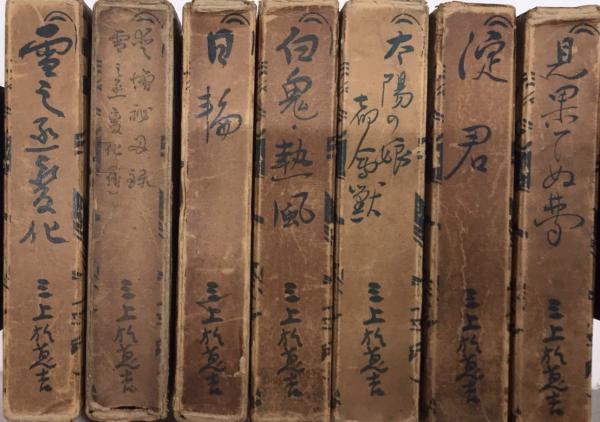 見果てぬ夢
三上於菟吉
淀君
三上於菟吉
太陽の娘
都会獣
三上於菟吉
白鬼・熱風
三上於菟吉
日輪
三上於菟吉
雪之丞變化
三上於菟吉
雪之丞變化
三上於菟吉